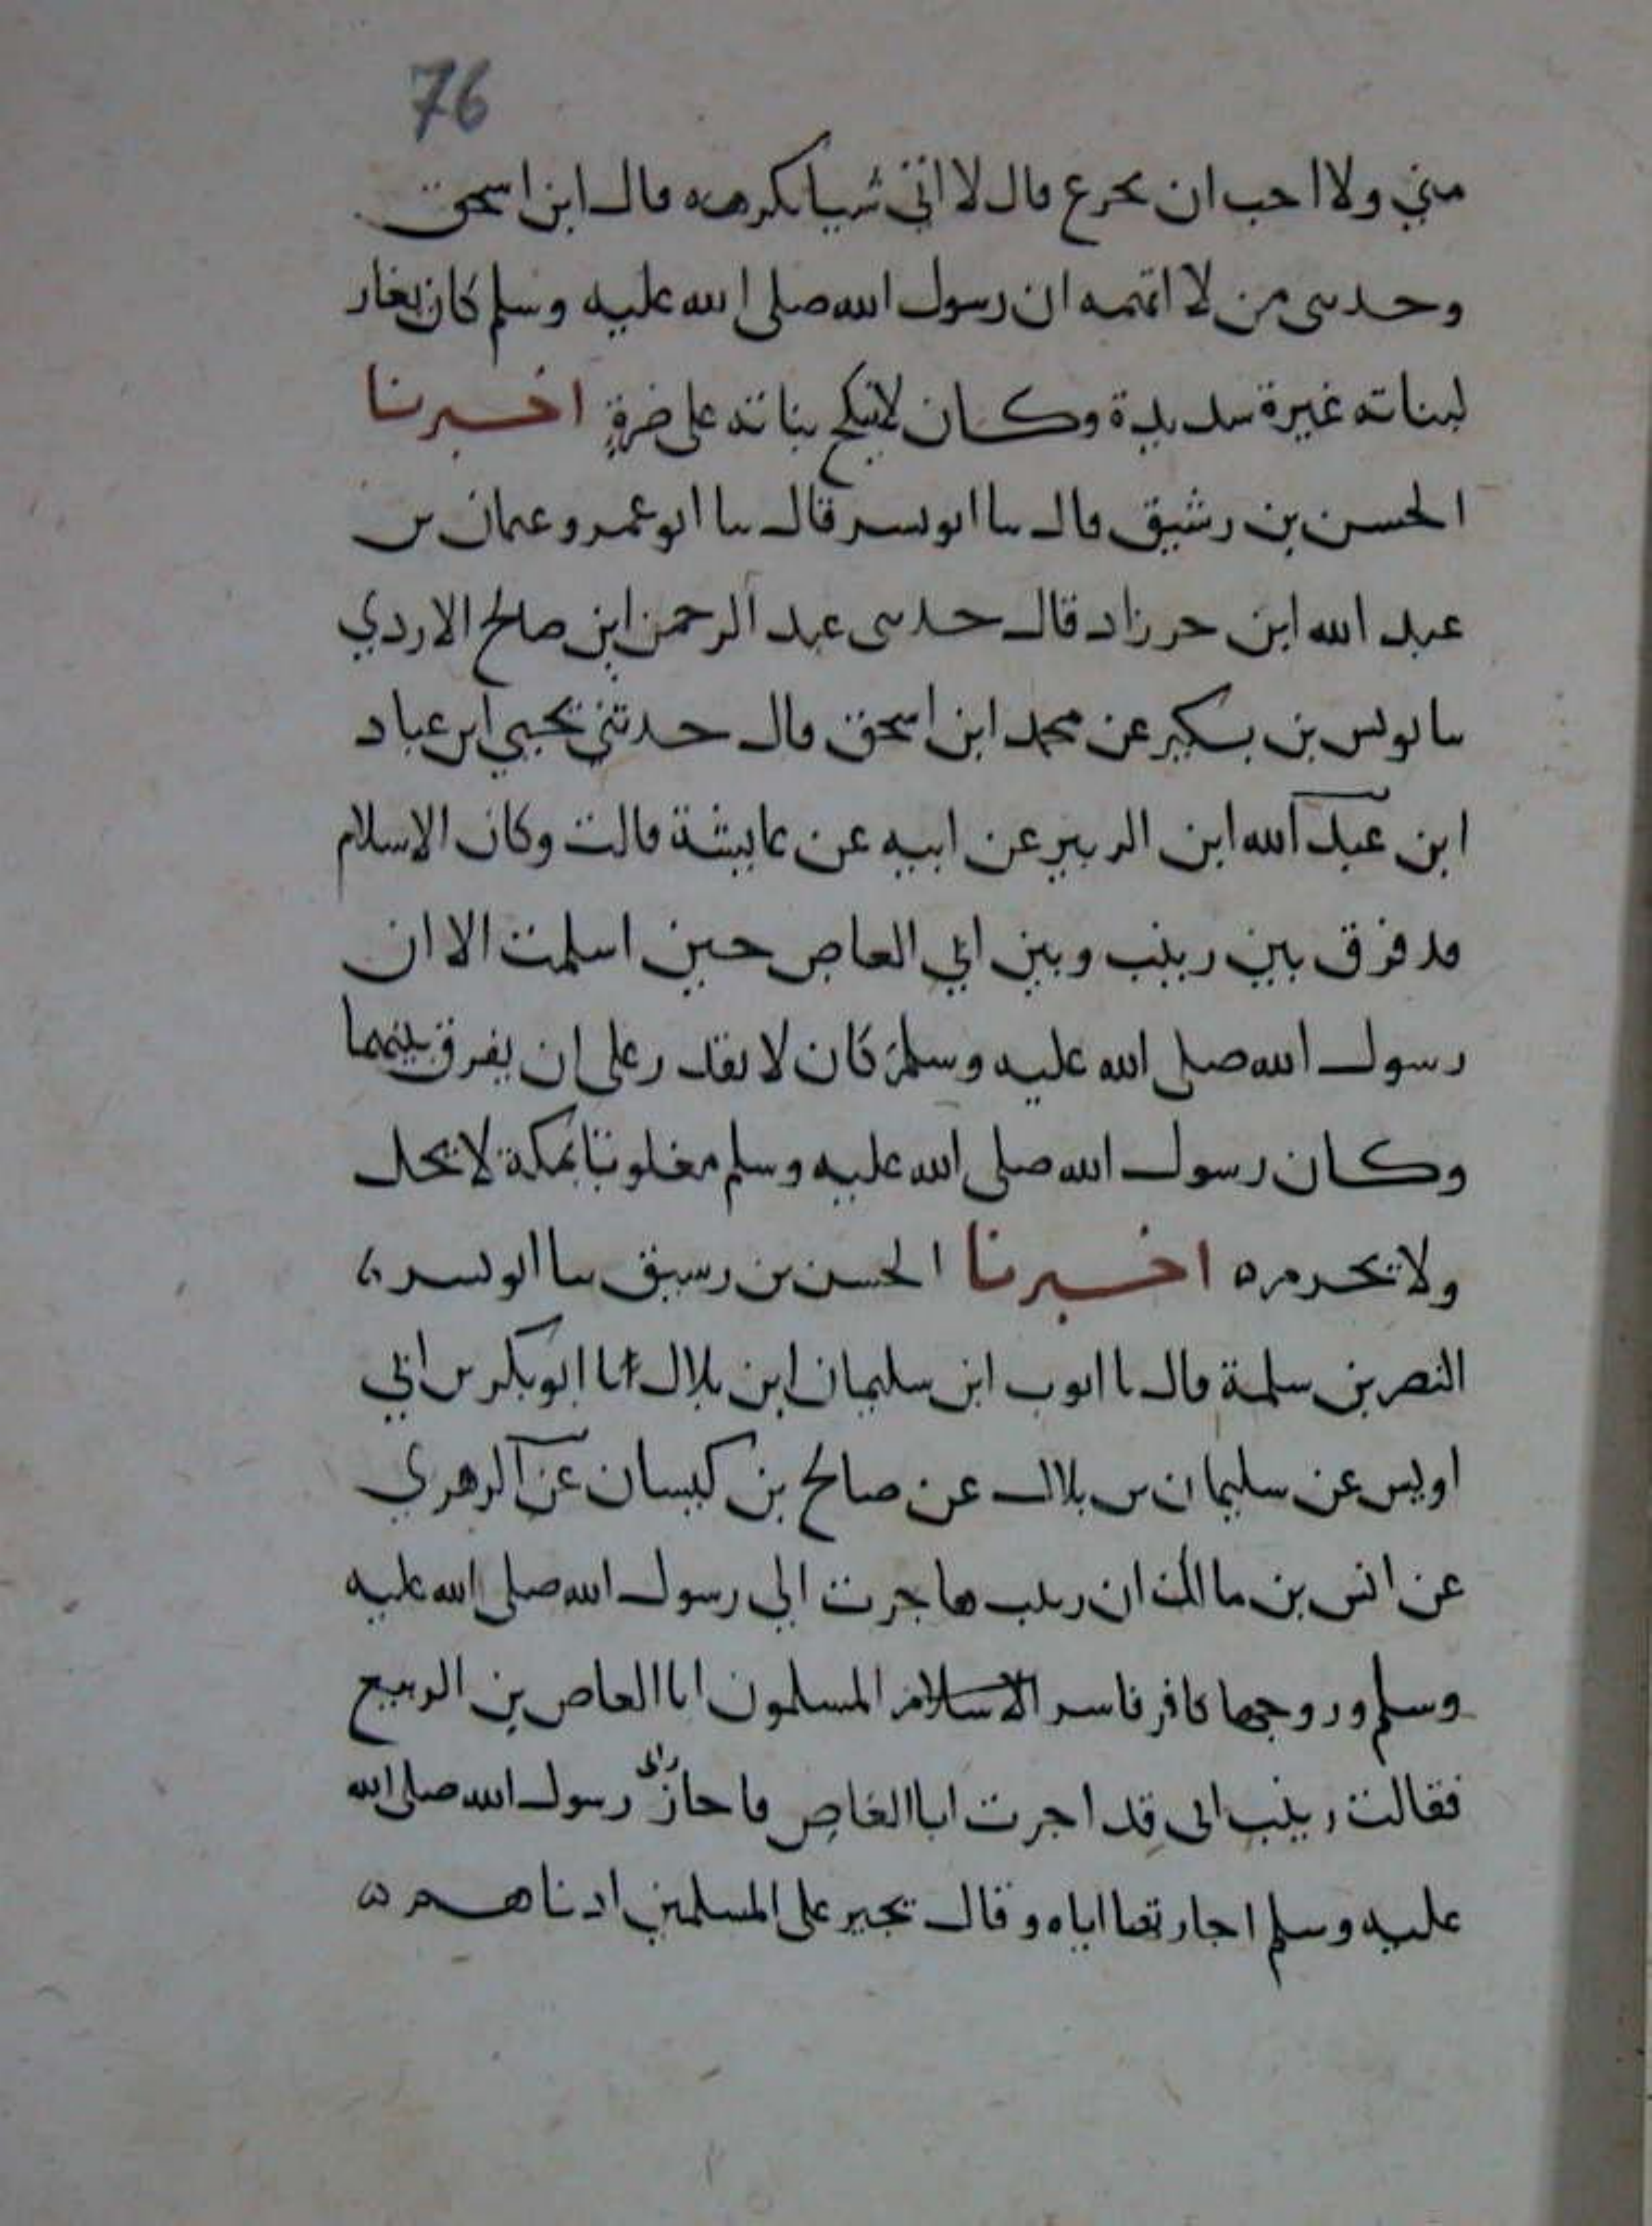 76
مني ولا احب ان تجزع قال لا اتي شيا تكرهه قال ابن اسحق
وحدثني من لا اتهمه ان رسول الله صلى الله عليه وسلم كان يغار
لبناته غيرة شديدة وكان لا ينكح بناته على ضرةٍ اخبرنا
الحسن بن رشيق قال ثنا ابو بشر قال ثنا ابو عمرو عثمان بن
عبد الله ابن خرزاد قال حدثني عبد الرحمن ابن صالح الازدي
ثنا يونس بن بكير عن محمد ابن اسحق قال حدثني يحيي ابن عباد
ابن عبد الله ابن الزبير عن ابيه عن عايشة قالت وكان الاسلام
قد فرق بين زينب وبين ابي العاص حين اسلمت الا ان
رسول الله صلى الله عليه وسلم كان لا يقدر على ان يفرق بينهما
وكان رسول الله صلى الله عليه وسلم مغلوبا بمكة لا يحل
ولا يحرم ه اخبرنا الحسن بن رشيق ثنا ابو بشر نا
النضر بن سلمة قال نا ايوب ابن سليمان ابن بلال انا ابو بكر بن ابي
اويس عن سليمان بن بلال عن صالح بن كيسان عن الزهري
عن انس بن مالك ان زينب هاجرت الي رسول الله صلى الله عليه
وسلم وزوجها كافر فاسر الاسلام المسلمون ابا العاص بن الربيع
فقالت زينب اني قد اجرت ابا العاص فاجاز رسول الله صلى الله
عليه وسلم اجارتها اياه وقال يجير على المسلمين ادناهم ه